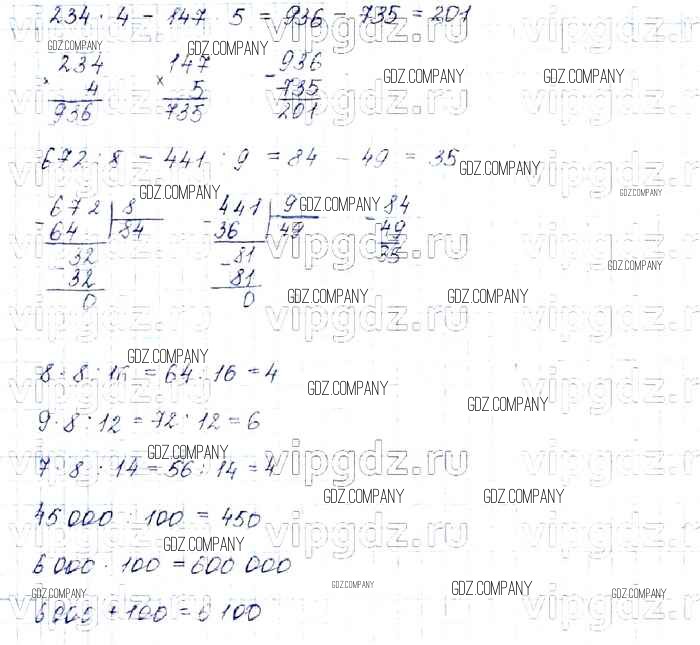 234 · 4 - 147 · 5 = 936 - 735 = 201
GDZ.COMPANY GDZ.COMPANY
234 147 936
× 4 × 5 - 735
936 735 201
GDZ.COMPANY GDZ.COMPANY
vipgdz.ru
672 : 8 - 441 : 9 = 84 - 49 = 35
GDZ.COMPANY GDZ.COMPANY GDZ.COMPANY
672 8 441 9 84
- 64 84 - 36 49 - 49
32 81 35
- 32 - 81
0 0
GDZ.COMPANY
GDZ.COMPANY GDZ.COMPANY
vipgdz.ru
GDZ.COMPANY
8 · 8 : 16 = 64 : 16 = 4
GDZ.COMPANY
vipgdz.ru
GDZ.COMPANY
9 · 8 : 12 = 72 : 12 = 6
GDZ.COMPANY
7 · 8 : 14 = 56 : 14 = 4
vipgdz.ru
GDZ.COMPANY GDZ.COMPANY
45 000 : 100 = 450
GDZ.COMPANY
6 000 · 100 = 600 000
GDZ.COMPANY GDZ.COMPANY GDZ.COMPANY GDZ.COMPANY
6 000 + 100 = 6 100
vipgdz.ru